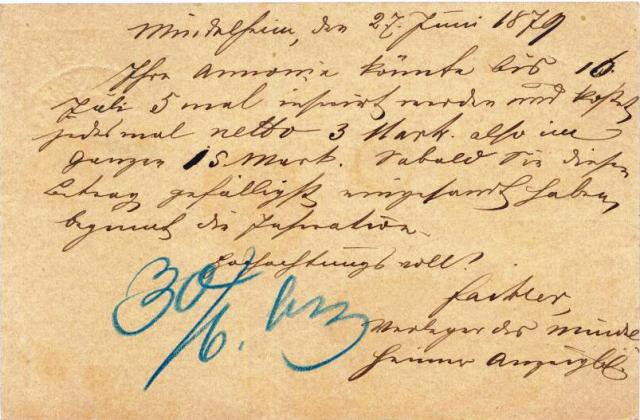 Mindelheim, den 27. Juni 1879
Ihre Annonce könnte bis 16.
Juli 5 mal inserirt werden und kostet
jedesmal netto 3 Mark. also im
Ganzen 15 Mark. Sobald Sie diesen
Betrag gefälligst eingesandt haben,
beginnt die Insertion.
Hochachtungsvoll!
Verleger des Mindel
heimer Anzeigbl.
30/6.